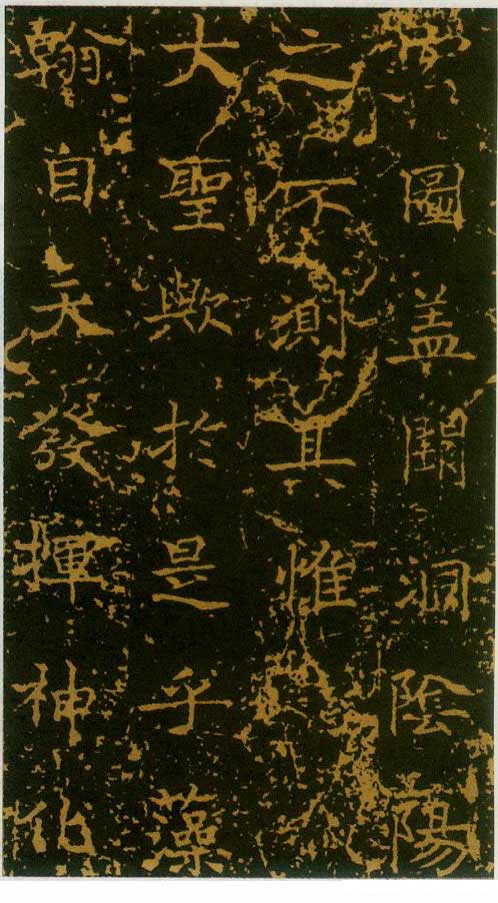 圖盖開洞陰陽
之不測其惟
大聖歟於是乎藻
翰自天發揮神化